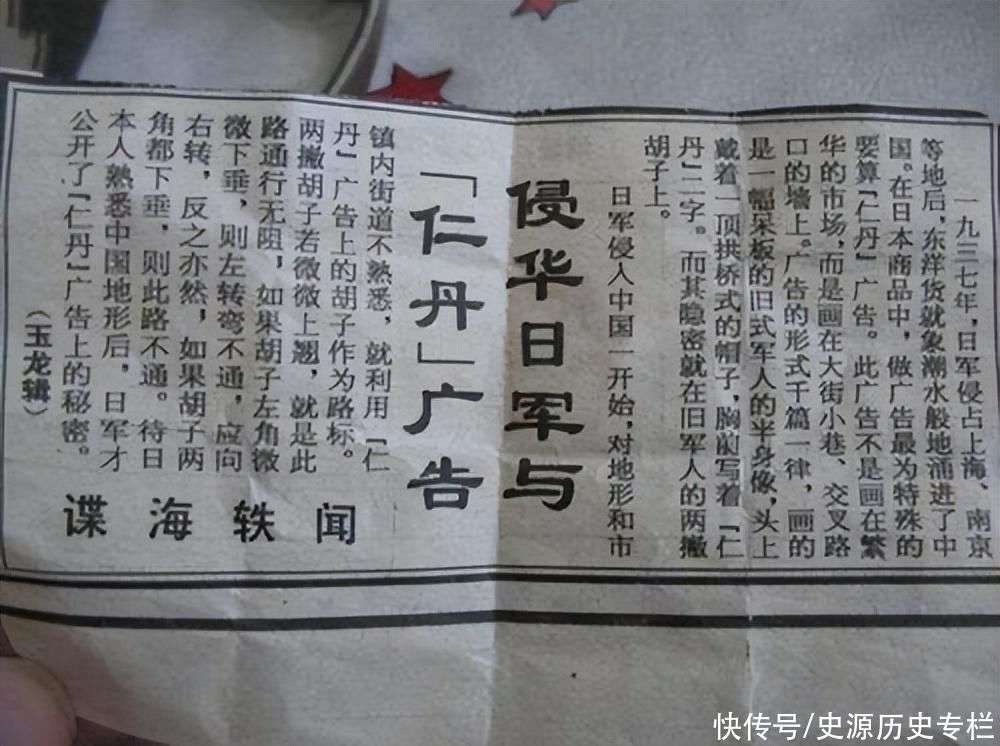 侵华日军与
「仁丹」广告
一九三七年，日军侵占上海、南京
等地后，东洋货就象潮水般地涌进了中
国。在日本商品中，做广告最为特殊的
要算「仁丹」广告。此广告不是画在繁
华的市场，而是画在大街小巷、交叉路
口的墙上。广告的形式千篇一律，画的
是一幅呆板的旧式军人的半身像，头上
戴着一顶拱桥式的帽子，胸前写着「仁
丹」二字。而其隐密就在旧军人的两撇
胡子上。
日军侵入中国一开始，对地形和市
镇内街道不熟悉，就利用「仁
丹」广告上的胡子作为路标。
两撇胡子若微微上翘，就是此
路通行无阻，如果胡子左角微
微下垂，则左转弯不通，应向
右转，反之亦然，如果胡子两
角都下垂，则此路不通。待日
本人熟悉中国地形后，日军才
公开了「仁丹」广告上的秘密。
（玉龙辑）
谍海轶闻
快传号/史源历史专栏